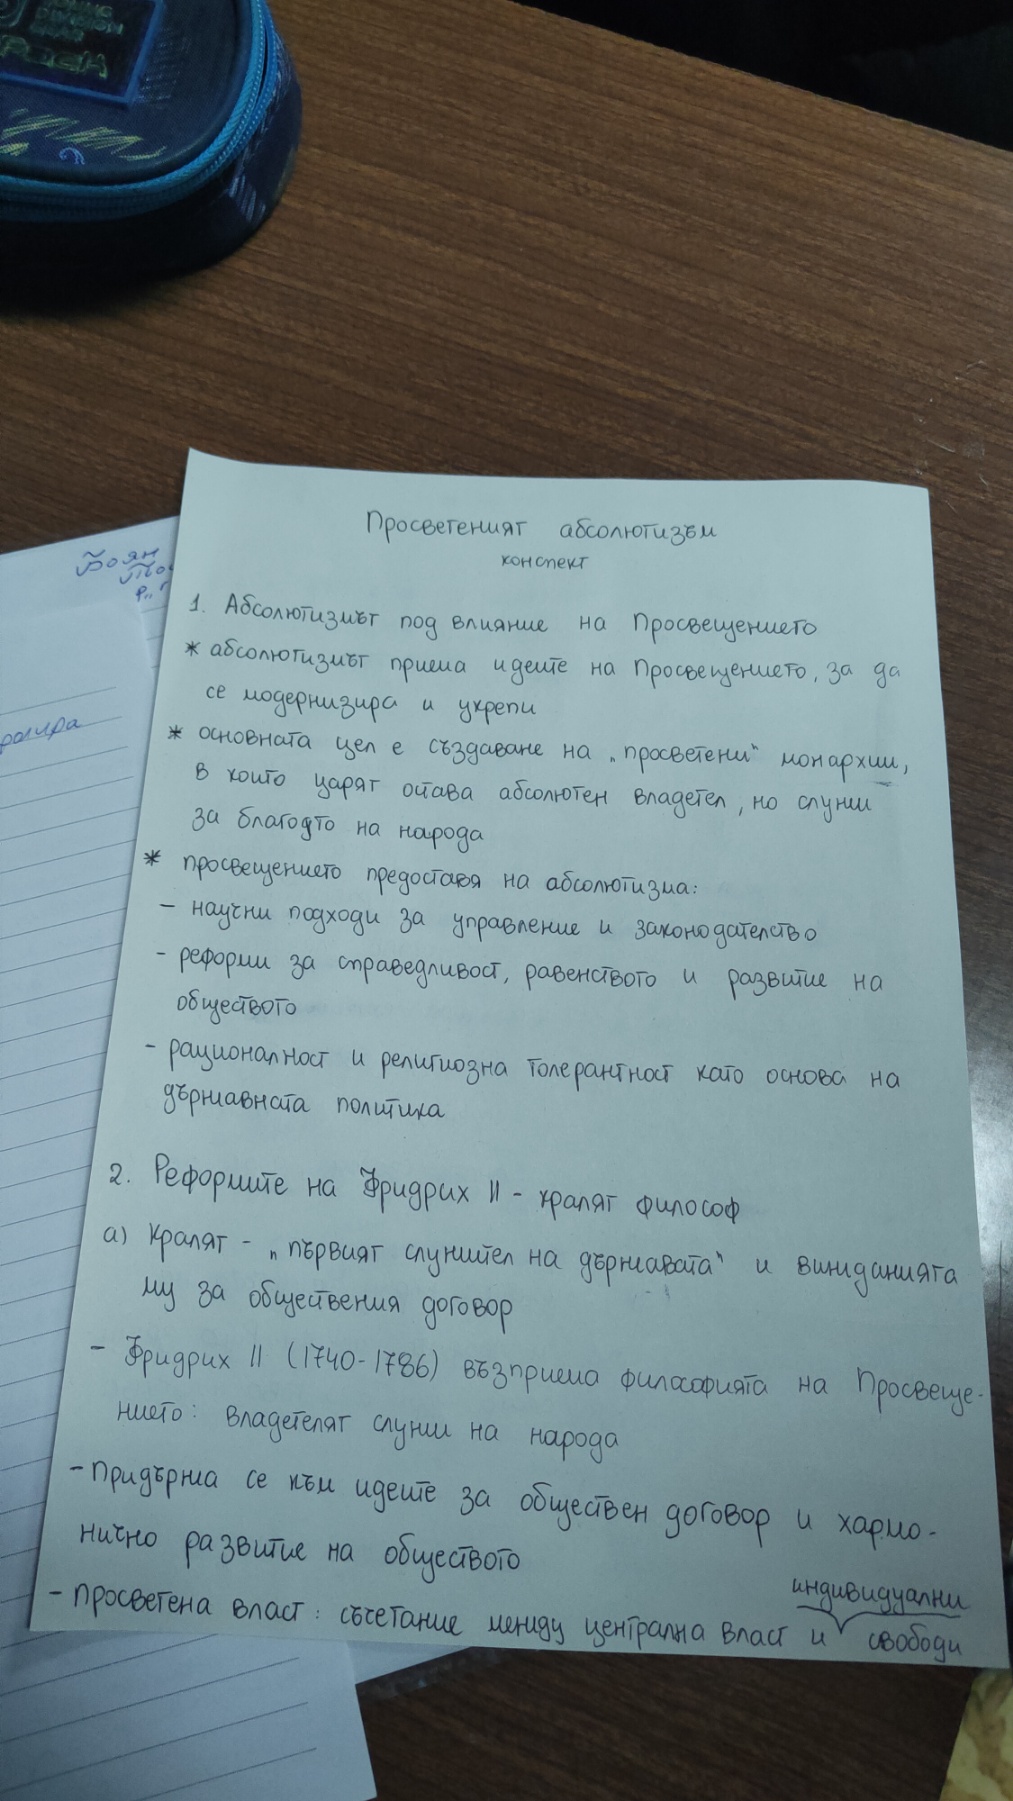 Просветеният абсолютизъм
конспект
1. Абсолютизмът под влияние на Просвещението
* абсолютизмът приема идеите на Просвещението, за да
се модернизира и укрепи
* основната цел е създаване на „просветени“ монархии,
в които царят остава абсолютен владетел, но служи
за благото на народа
* просвещението предоставя на абсолютизма:
- научни подходи за управление и законодателство
- реформи за справедливост, равенството и развитие на
обществото
- рационалност и религиозна толерантност като основа на
държавната политика
2. Реформите на Фридрих II - кралят философ
а) Кралят - „първият служител на държавата“ и вижданията
му за обществения договор
- Фридрих II (1740-1786) възприема философията на Просвеще-
нието: владетелят служи на народа
- Придържа се към идеите за обществен договор и хармо-
нично развитие на обществото
индивидуални
- Просветена власт: съчетание между централна власт и свободи
Боян